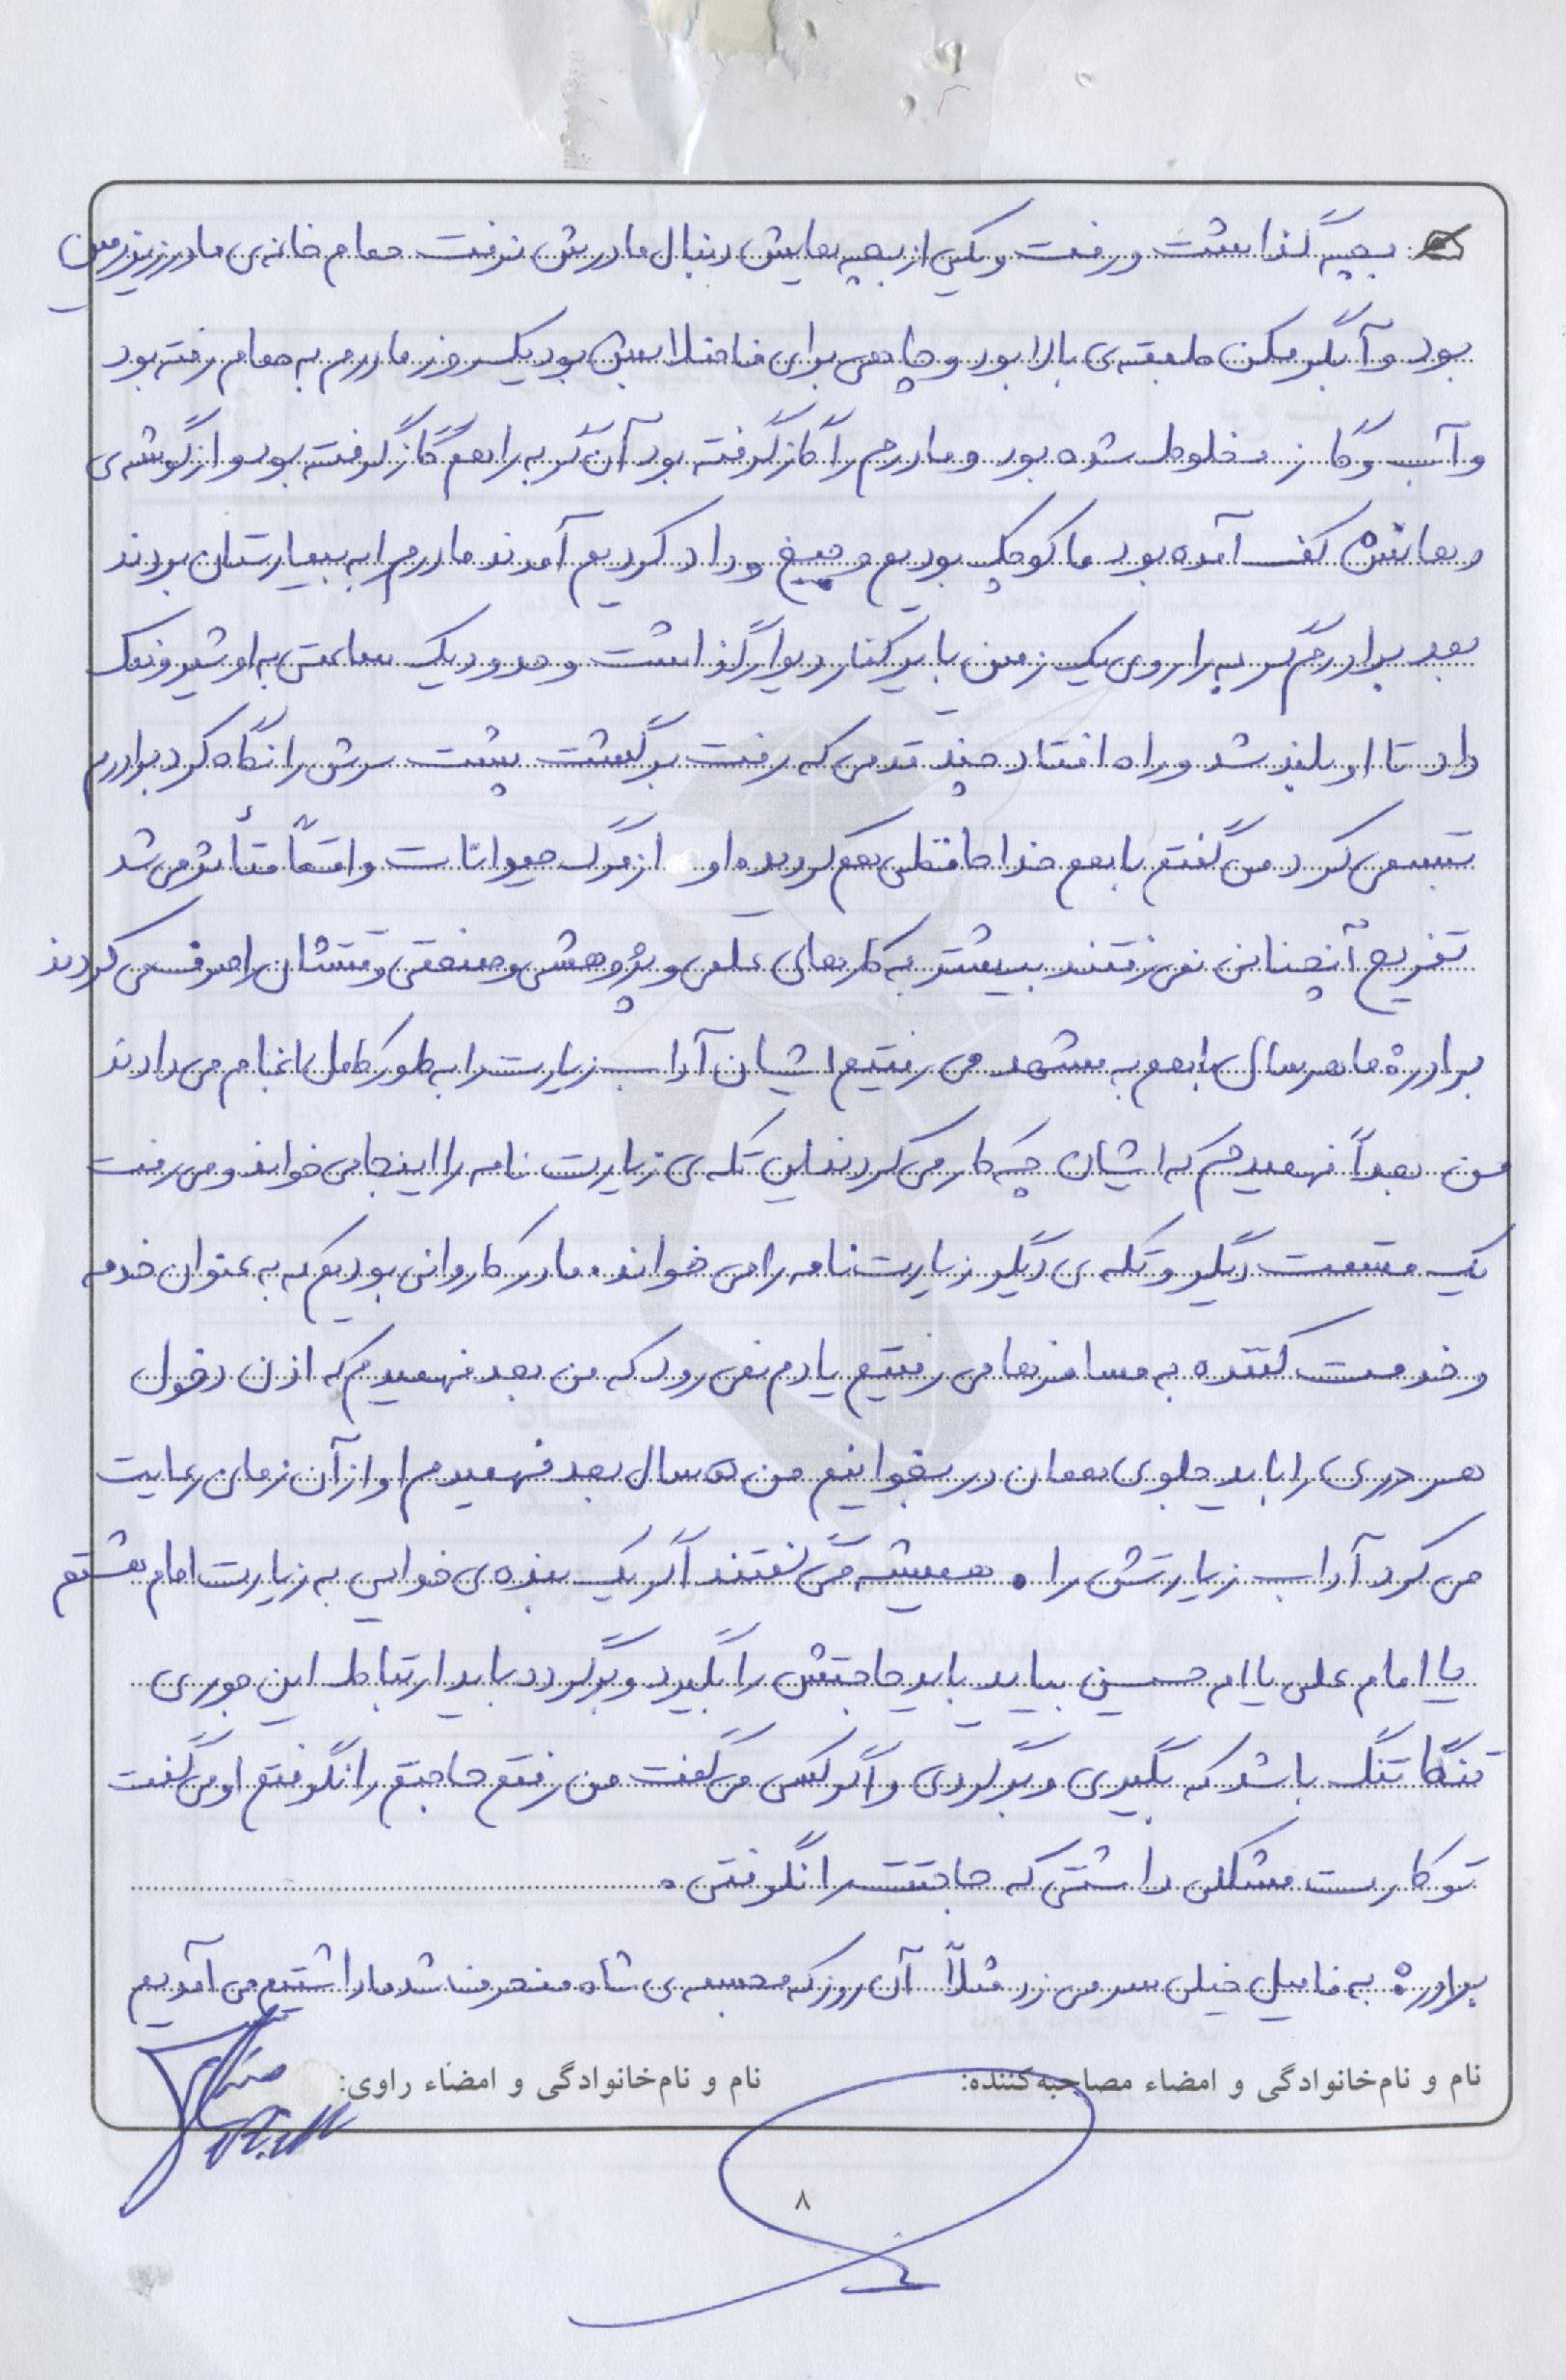 بچه گذاشت و رفت و یکی از بچه هایش دنبال مادرش نرفت حمام خانه ی مادرم زیرزمین
بود و آبگرمکن طبقه ی بالا بود و چاهی برای فاضلابش بود یک روز مادرم به حمام رفته بود
و آب و گاز مخلوط شده بود و مادرم را گاز گرفته بود آن گربه را هم گاز گرفته بود و از گوشه ی
دهانش کف آمده بود ما کوچک بودیم و جیغ و داد کردیم آمدند مادرم را به بیمارستان بردند
بعد برادرم گربه را روی یک زمین بایر کنار دیوار گذاشت و حدود یک ساعتی به او شیر و نمک
داد تا او بلند شد و راه افتاد چند قدمی که رفت برگشت پشت سرش را نگاه کرد برادرم
تبسمی کرد من گفتم با هم خداحافظی هم کردید، او از مرگ حیوانات واقعاً متأثر می شد
تفریح آنچنانی نمی رفتند بیشتر به کارهای علمی و پژوهشی و صنعتی وقتشان را صرف می کردند
برادرم ما هر سال با هم به مشهد می رفتیم ایشان آداب زیارت را به طور کامل انجام می دادند
من بعداً فهمیدم که ایشان چه کار می کردند این تکه ی زیارت نامه را اینجا می خواند و می رفت
یک قسمت دیگر و تکه ی دیگر زیارت نامه را می خواند. ما در کاروانی بودیم که به عنوان خدمه
و خدمت کننده به مسافرها می رفتیم یادم نمی رود که من بعد فهمیدم که اذن دخول
هر دری را باید جلوی همان در بخوانیم من ۵ سال بعد فهمیدم او از آن زمان رعایت
می کرد آداب زیارتش را. همیشه می گفتند اگر یک بنده ی خدایی به زیارت امام هشتم
یا امام علی یا امام حسین بیاید باید حاجتش را بگیرد و برگردد باید ارتباط این جوری
تنگاتنگ باشد که بگیری و برگردی و اگر کسی می گفت من رفتم حاجتم را نگرفتم او می گفت
تو کارت مشکلی داشتی که حاجتت را نگرفتی.
برادرم به فامیل خیلی سر می زد مثلاً آن روز که مجسمه ی شاه منحرف شد ما داشتیم می آمدیم
نام و نام‌خانوادگی و امضاء مصاحبه‌کننده: نام و نام‌خانوادگی و امضاء راوی:
۸